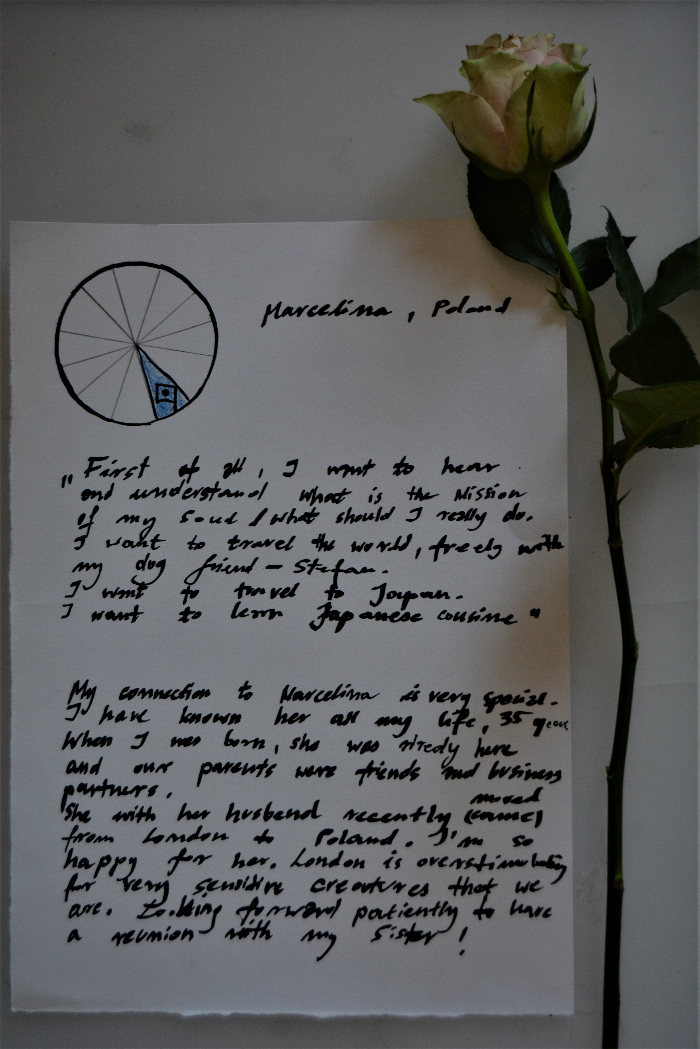 Marcelina, Poland
„First of all, I want to hear
and understand what is the mission
of my soul / what should I really do.
I want to travel the world, freely with
my dog friend – Stefan.
I want to travel to Japan.
I want to learn Japanese cousine"
My connection to Marcelina is very special.
I have known her all my life, 35 years
When I was born, she was already here
and our parents were friends and business
partners.
moved
She with her husband recently (came)
from London to Poland. I'm so
happy for her. London is overstimulating
for very sensitive creatures that we
are. Looking forward patiently to have
a reunion with my sister!